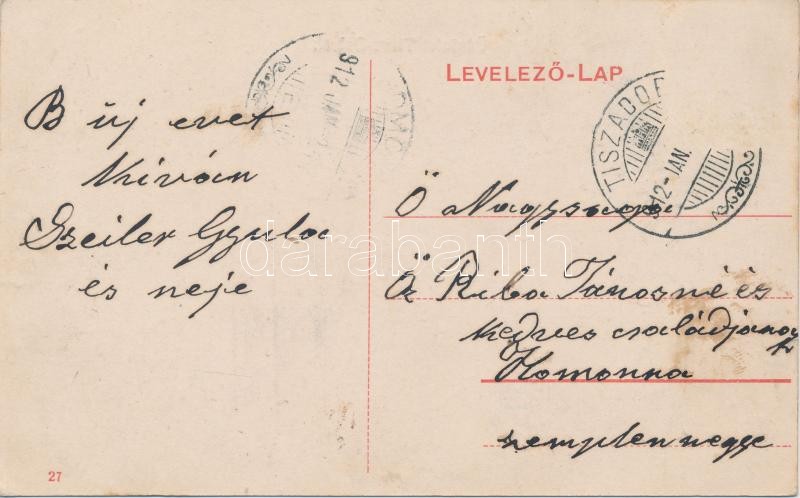 LEVELEZŐ-LAP
B új evet
kíván
Szeiler Gyula
és neje
TISZADOB
912 JAN.
912 JAN.
Ö Nagysága
Öz Riba Jánosné és
kedves családjának
Homonna
zemplen megye
27
darabanth